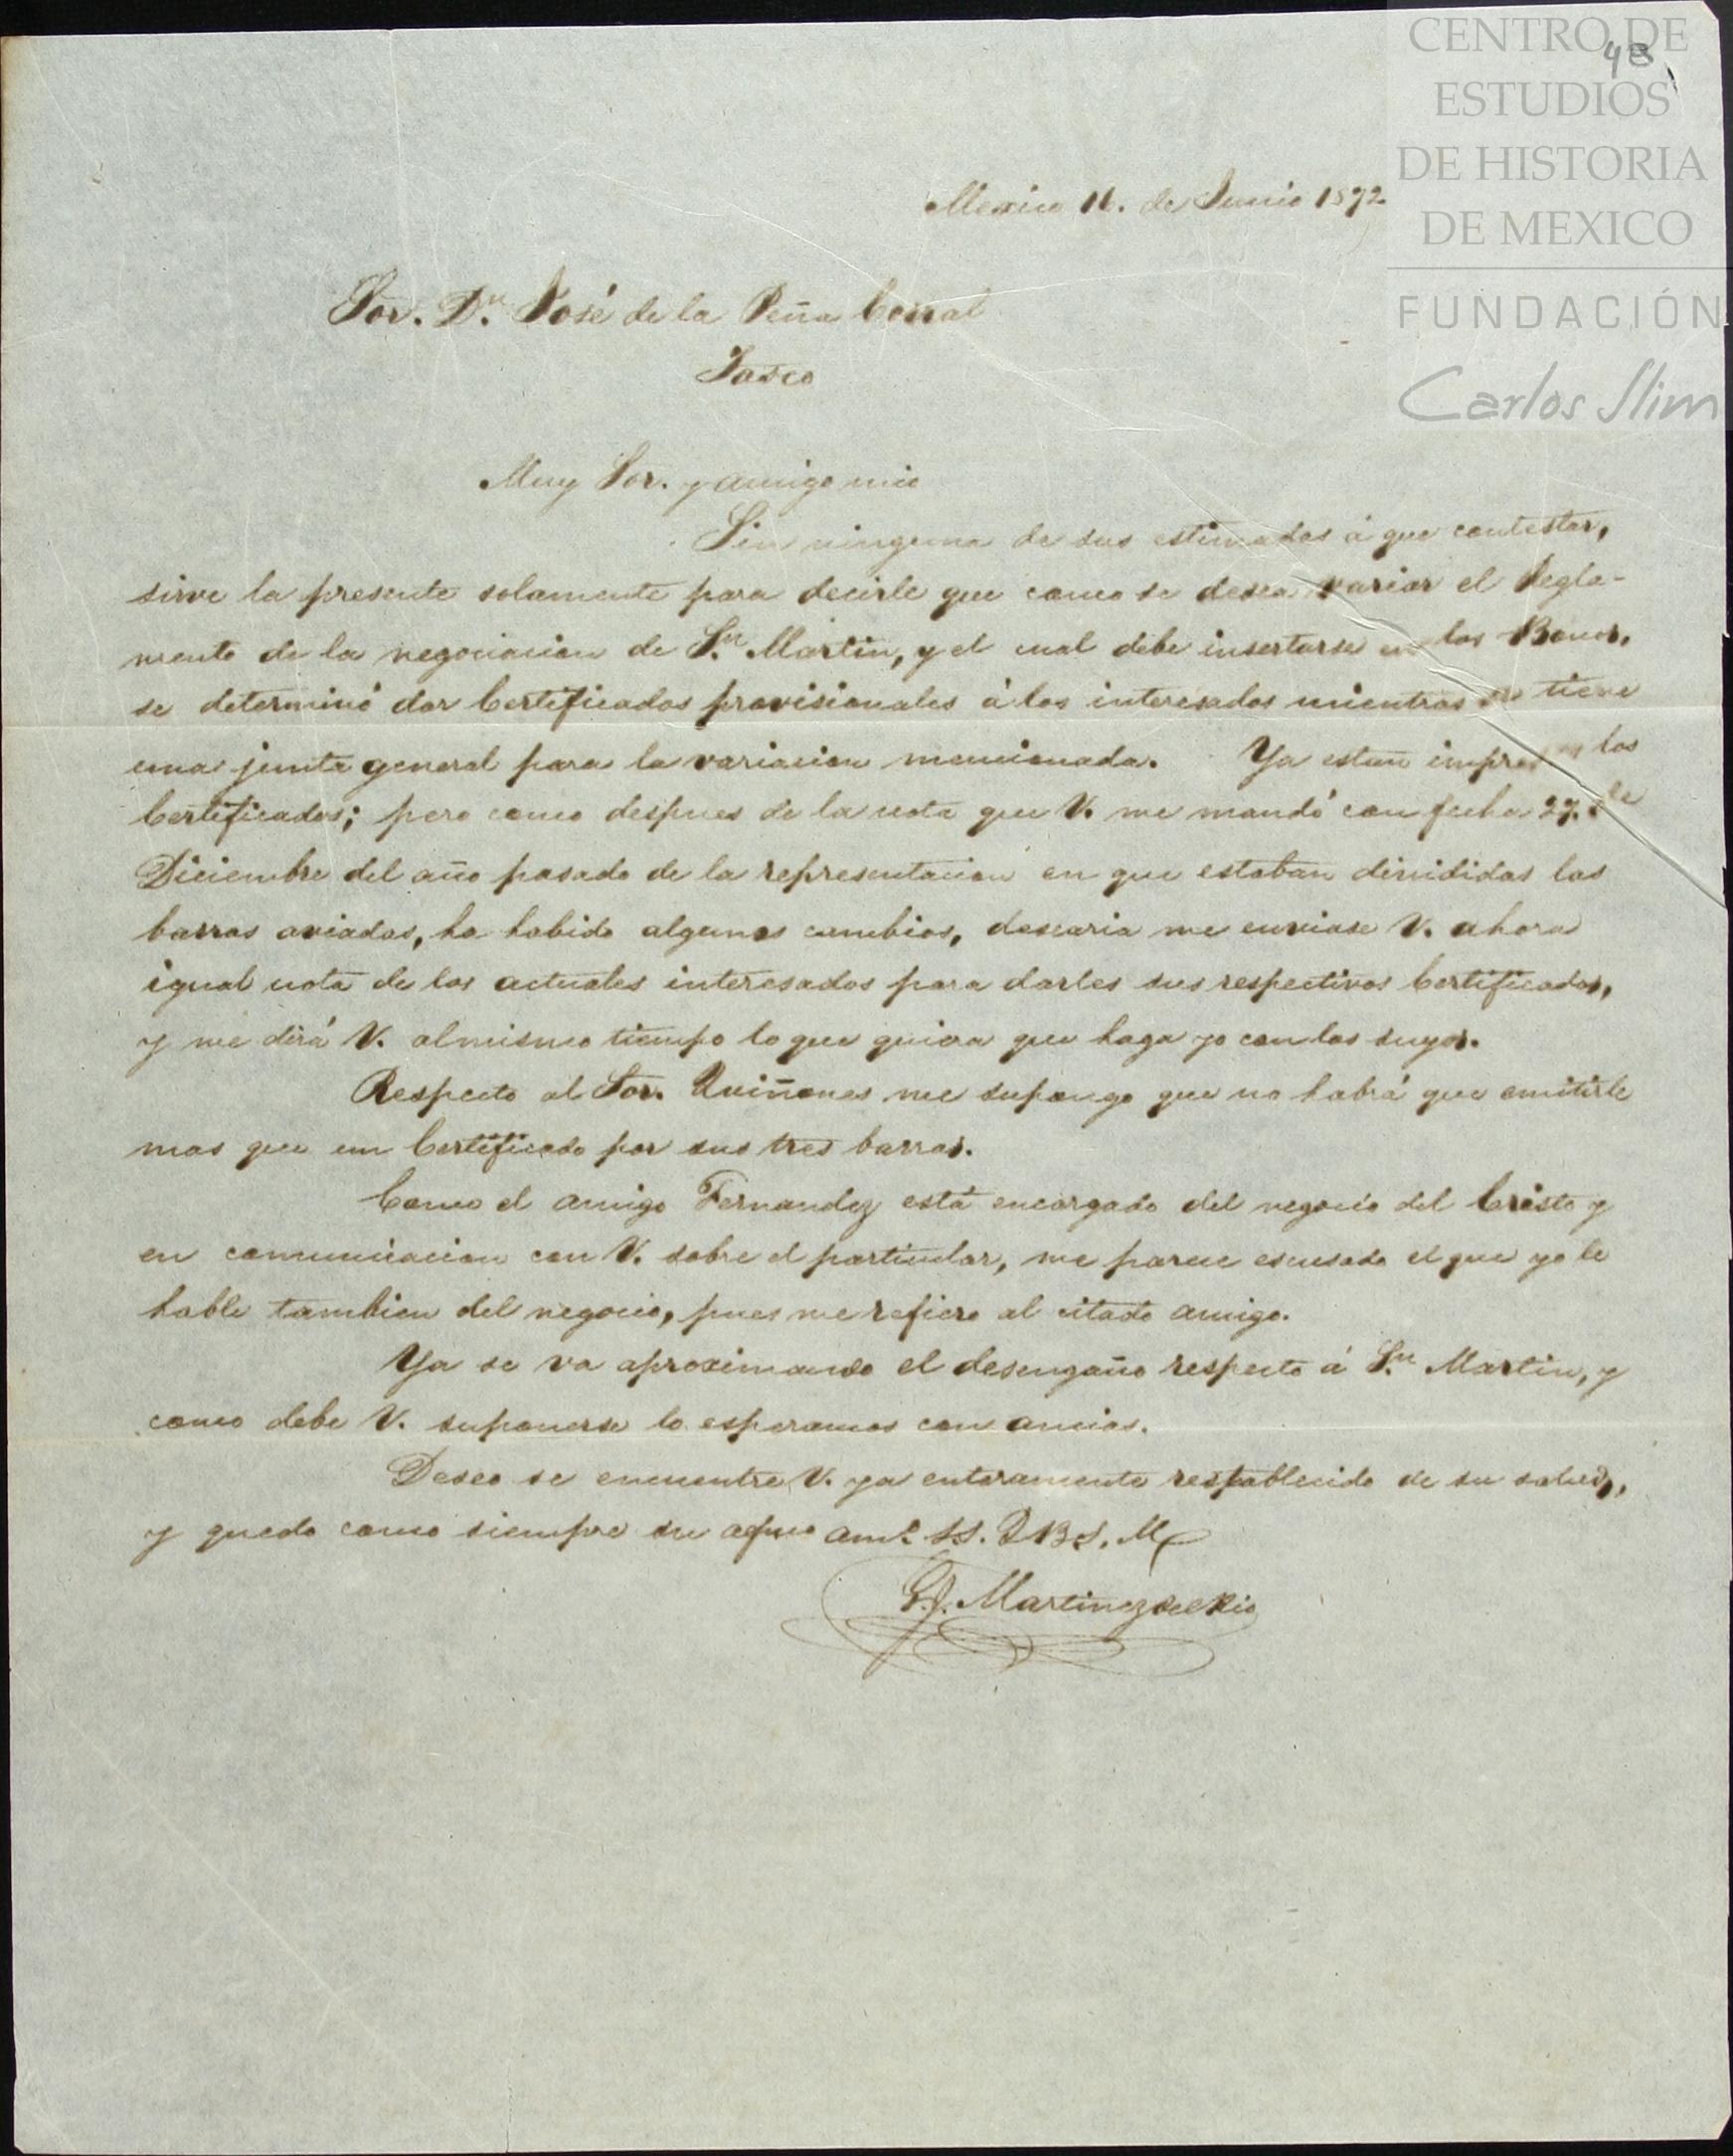 CENTRO DE
ESTUDIOS
DE HISTORIA
DE MEXICO
FUNDACIÓN
Carlos Slim
48
Mexico 11. de Junio 1872
Sor. Dn. José de la Peña Corral
Tasco
Muy Sor. y amigo mio
Sin ninguna de sus estimadas á que contestar,
sirve la presente solamente para decirle que como se desea variar el Regla-
mento de la negociacion de Sn. Martin, y el cual debe insertarse en los Bonos,
se determinó dar Certificados provisionales á los interesados mientras se tiene
una junta general para la variacion mencionada. Ya estan impresos los
Certificados; pero como despues de la nota que V. me mandó con fecha 27. de
Diciembre del año pasado de la representacion en que estaban divididas las
barras aviadas, ha habido algunos cambios, desearia me enviase V. ahora
igual nota de los actuales interesados para darles sus respectivos Certificados,
y me dirá V. al mismo tiempo lo que quiera que haga yo con los suyos.
Respecto al Sor. Quiñones me supongo que no habrá que emitirle
mas que un Certificado por sus tres barras.
Como el amigo Fernandez está encargado del negocio del Cristo y
en comunicacion con V. sobre el particular, me parece escusado el que yo le
hable tambien del negocio, pues me refiero al citado amigo.
Ya se va aproximando el desengaño respecto á Sn. Martin, y
como debe V. suponerse lo esperamos con ancias.
Deseo se encuentre V. ya enteramente restablecido de su salud,
y quedo como siempre su afmo amo. SS. Q B S. M
Martinez del Rio